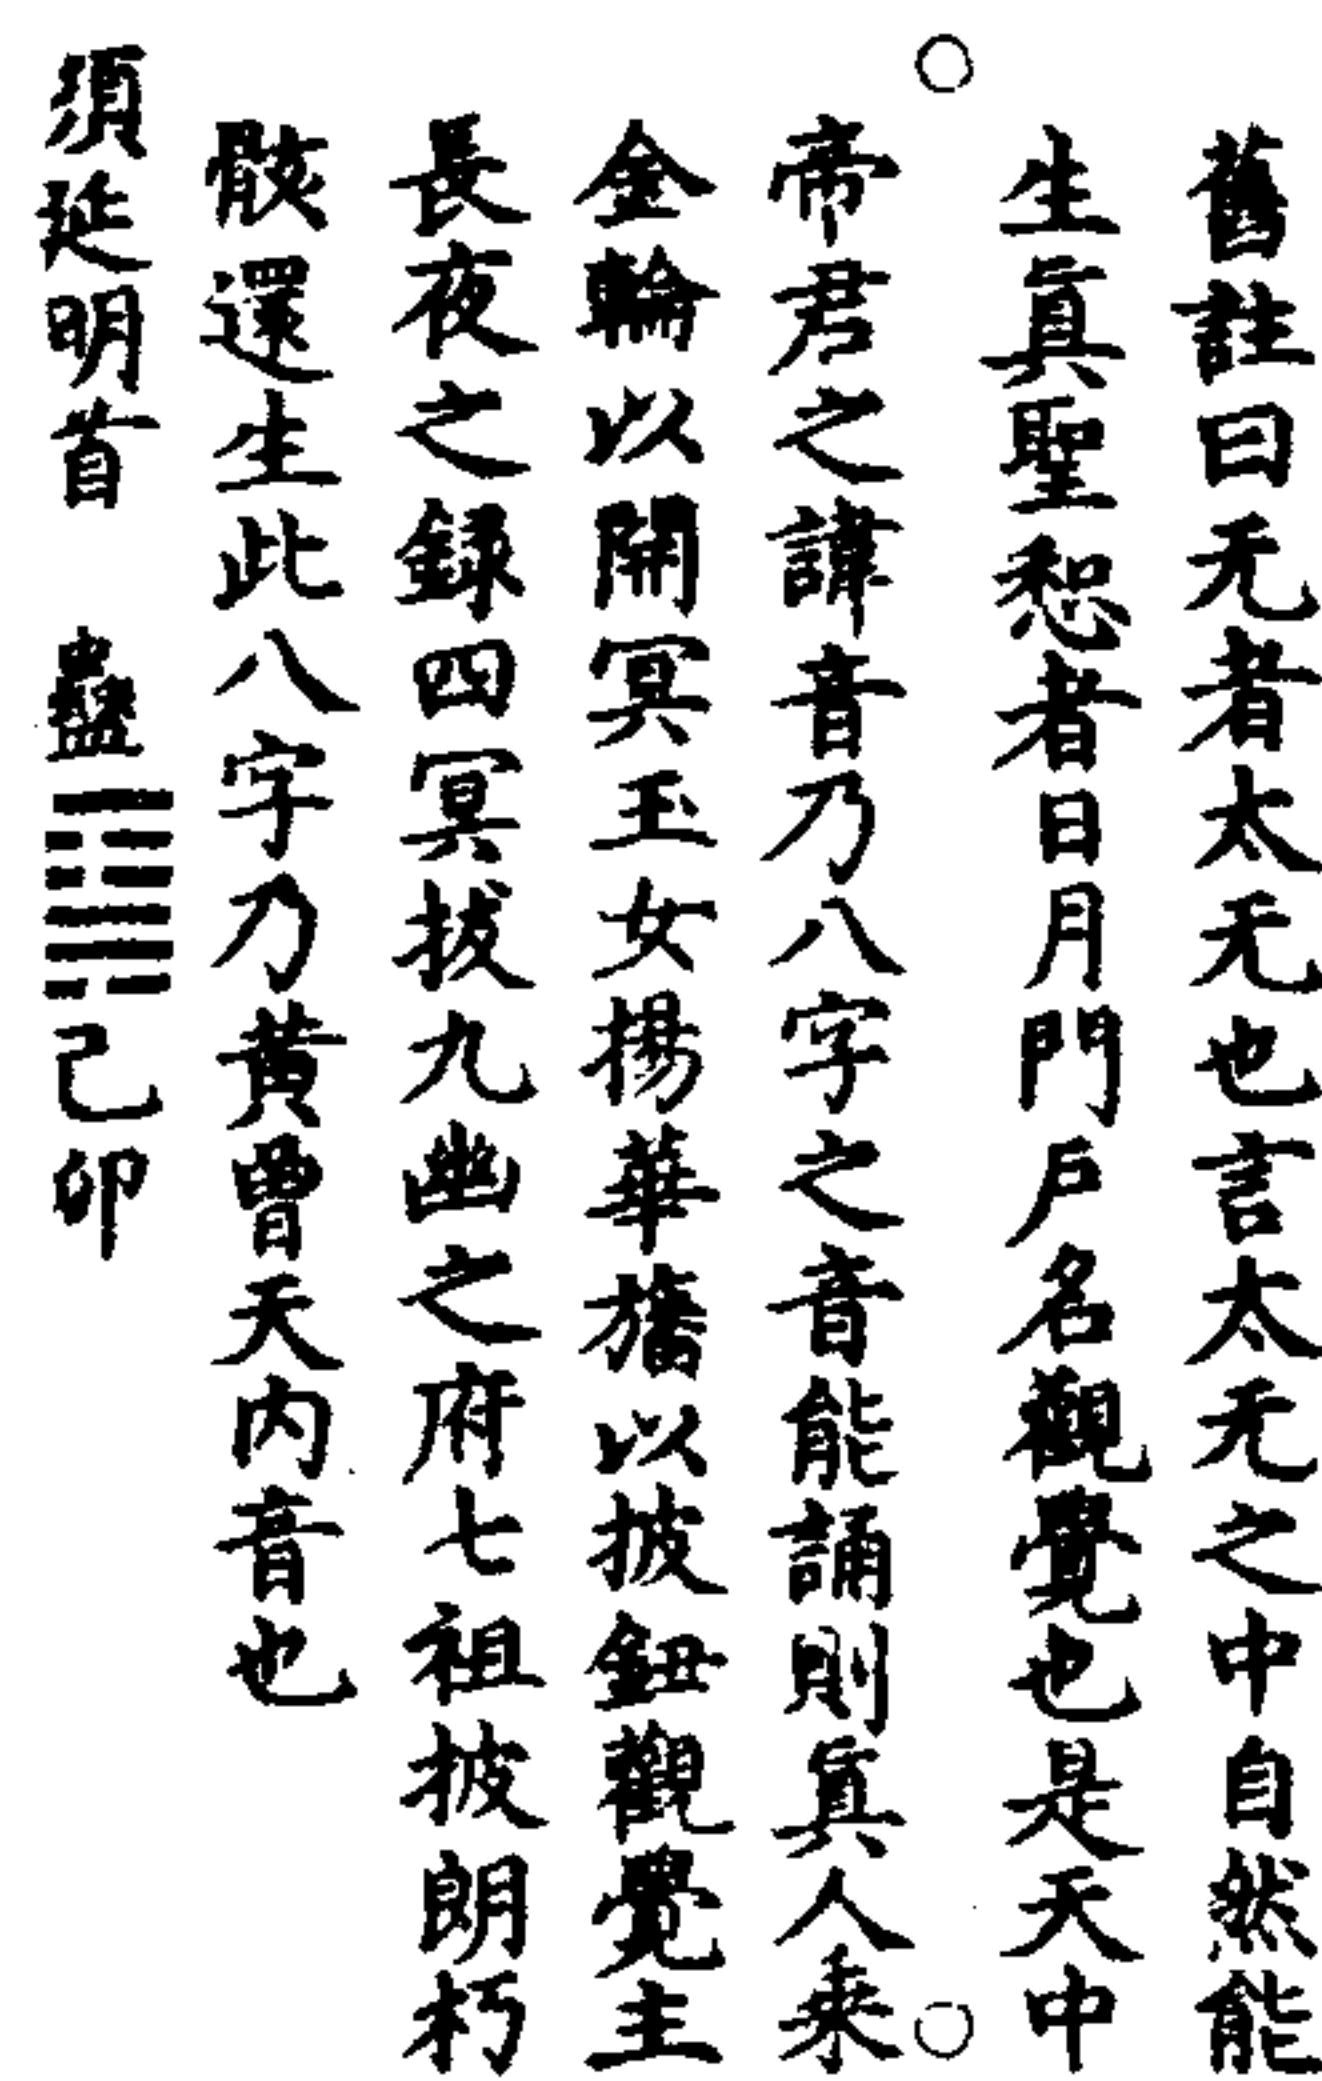 舊註曰无者太无也言太无之中自然能
生眞聖恕者日月門戶名觀覺也是天中
帝君之諱音乃八字之音能誦則眞人乗
金輪以開冥玉女揚華旛以披鈕觀覺主
長夜之録四冥拔九幽之府七祖披朗朽
骸還生此八字乃黃曾天內音也
須延明首　蠱䷑己卯